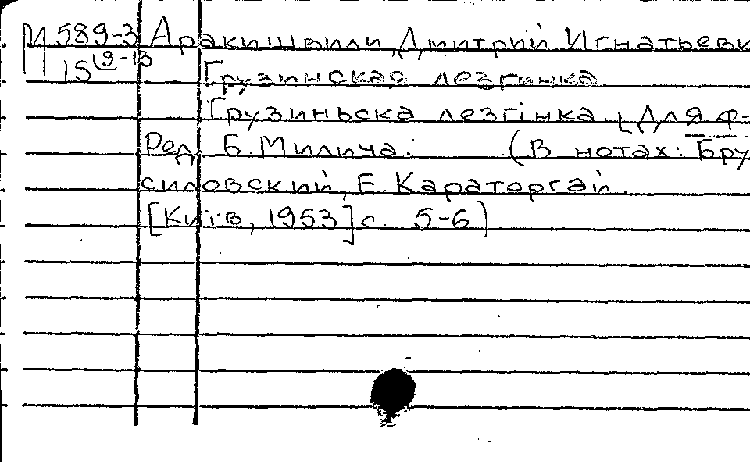 М 589-3 Аракишвили, Дмитрий Игнатьеви
15(9-13
Грузинская лезгинка
Грузиньска лезгінка [Для ф-
Ред. Б. Милича. (В нотах: Бру
силовский, Е. Караторгай.
[Київ, 1953] с. 5-6)